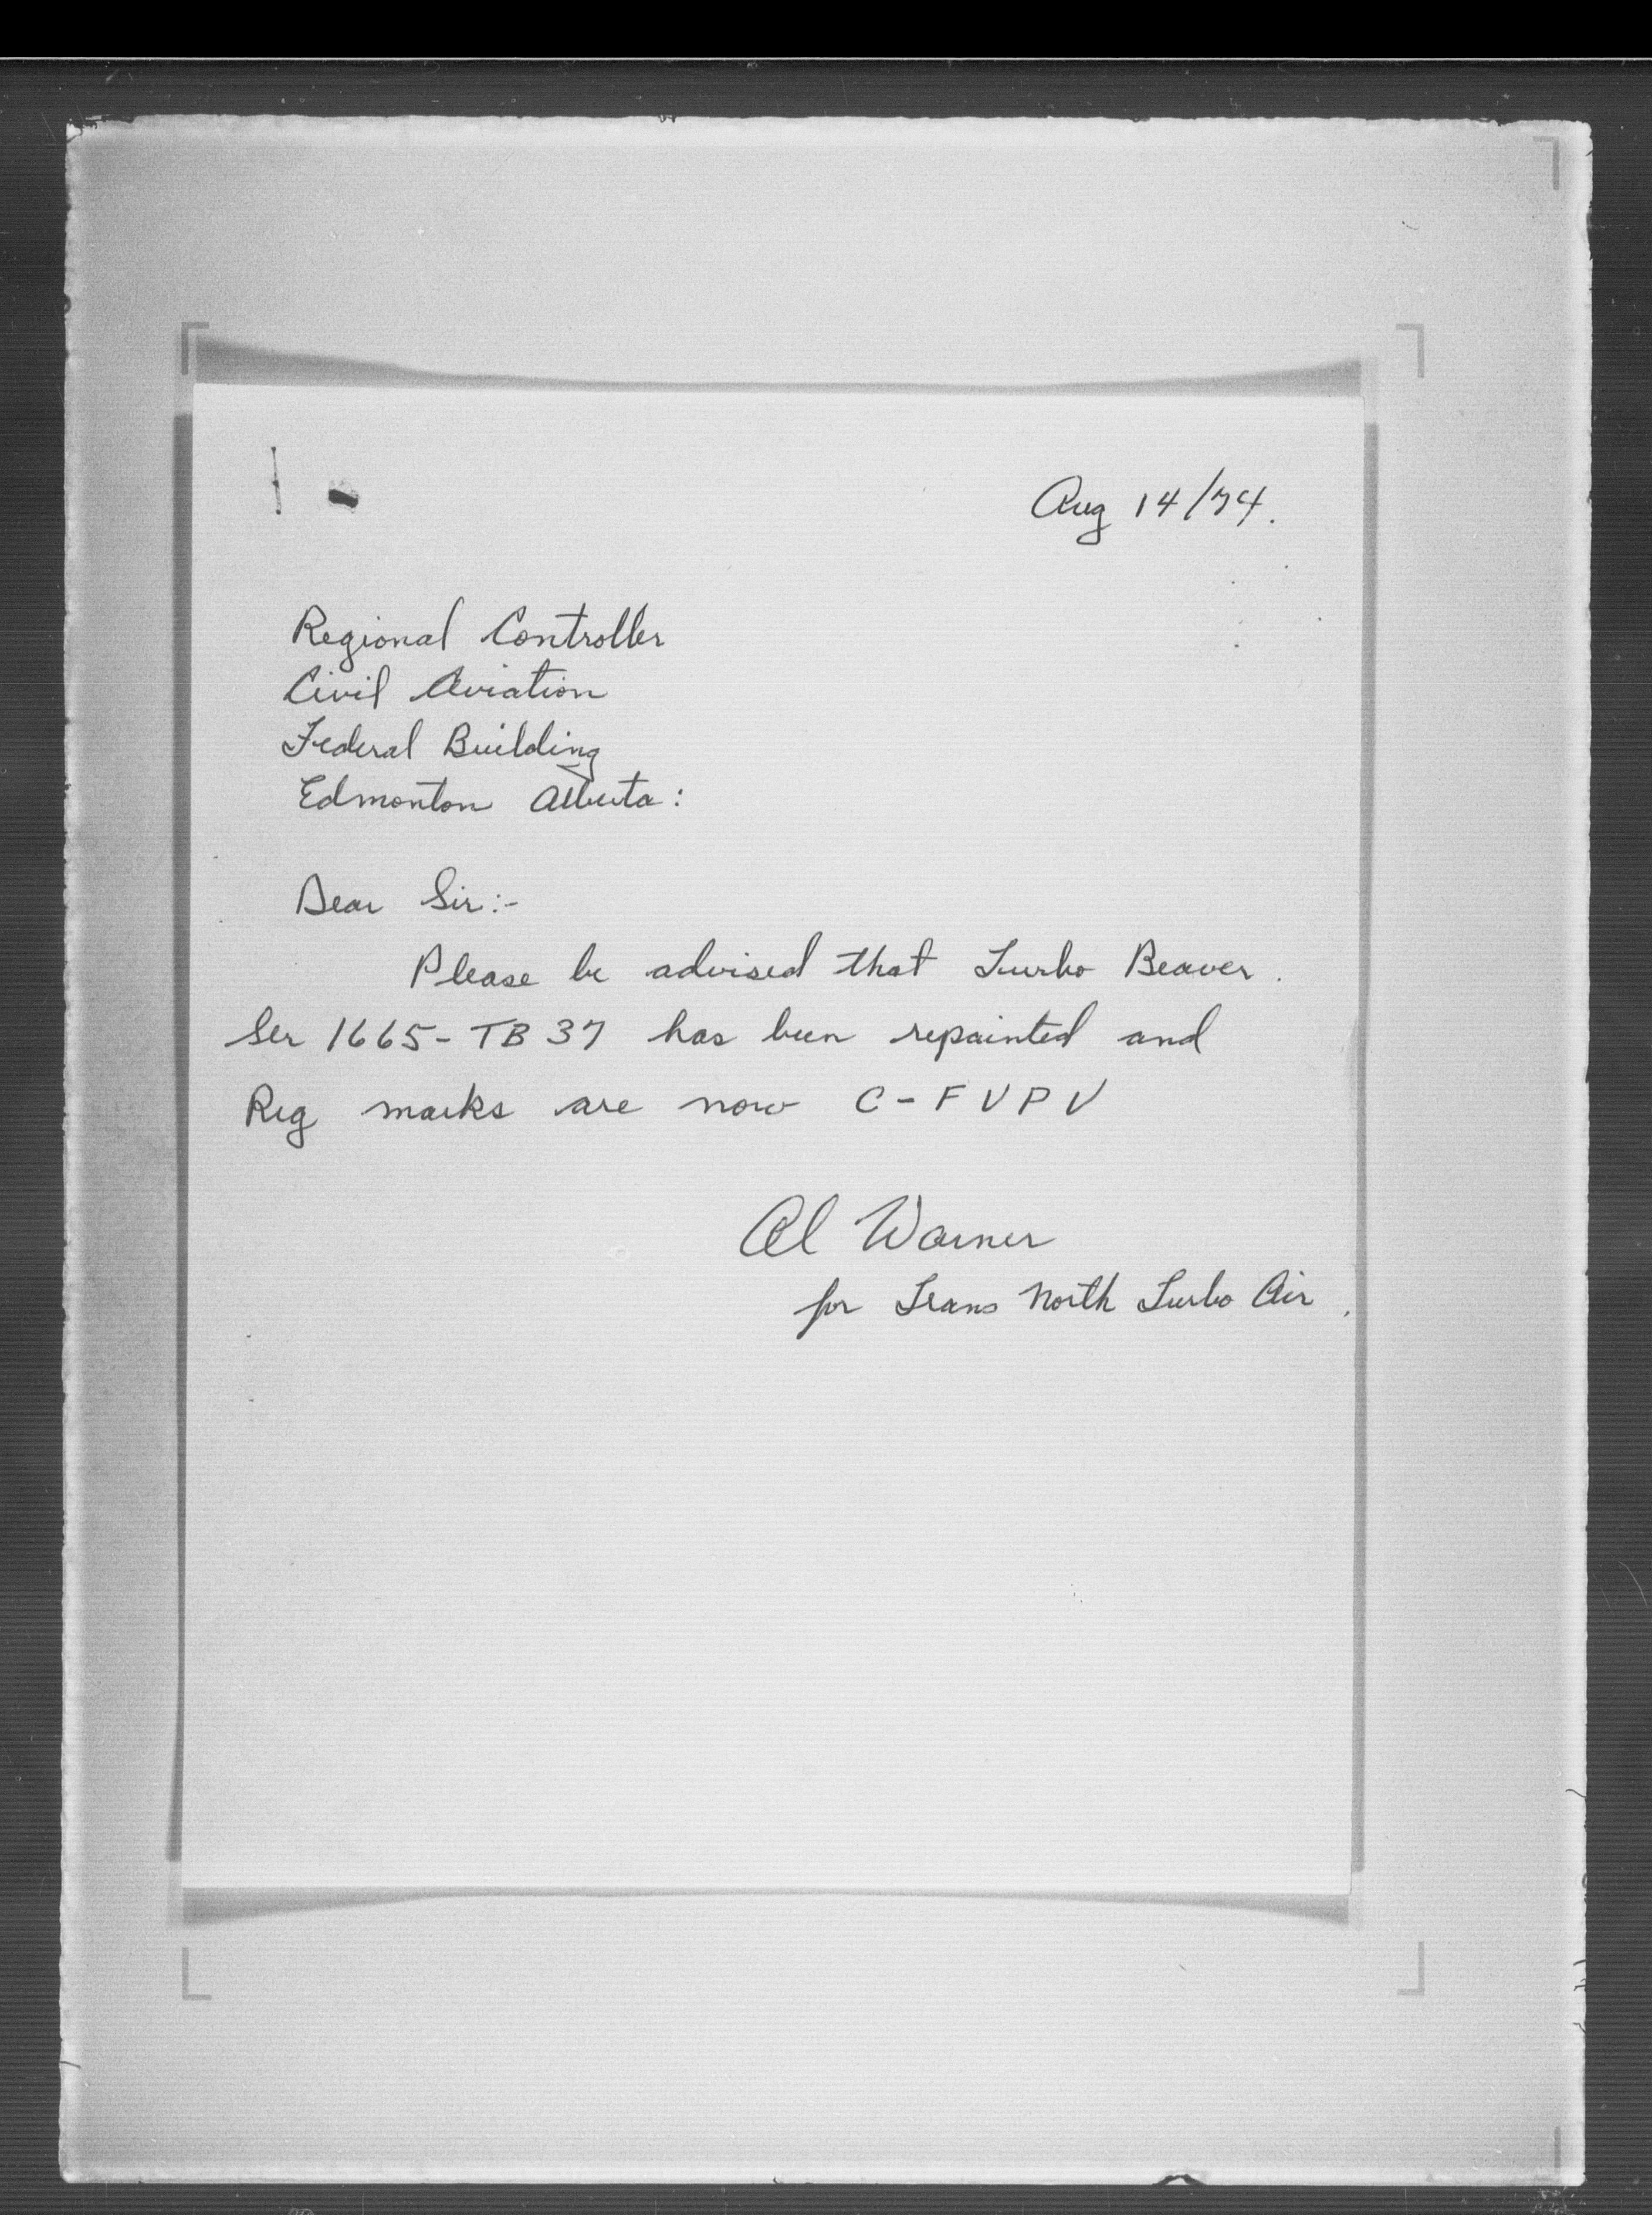 Aug 14/74.
Regional Controller
Civil Aviation
Federal Building
Edmonton Alberta:
Dear Sir:-
Please be advised that Turbo Beaver.
Ser 1665-TB37 has been repainted and
Reg marks are now C-FVPV
Al Warner
for Trans North Turbo Air.